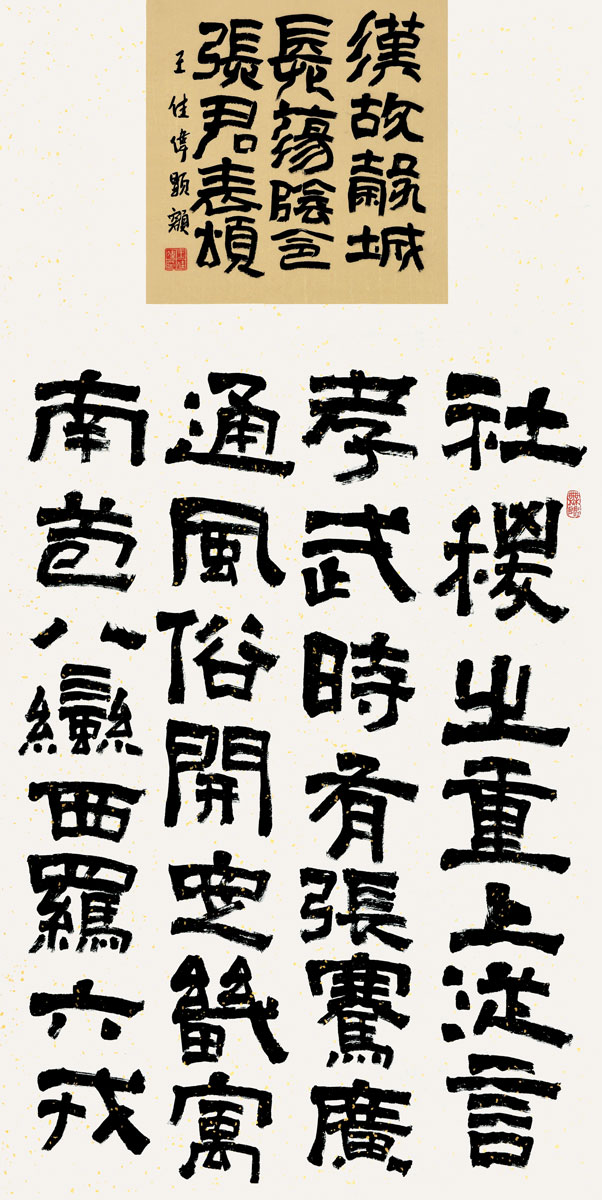 漢故穀城
長蕩陰令
張君表頌
王佳偉題額
社稷之重上從言
孝武時有張騫廣
通風俗開定畿寓
南苞八蠻西羈六戎